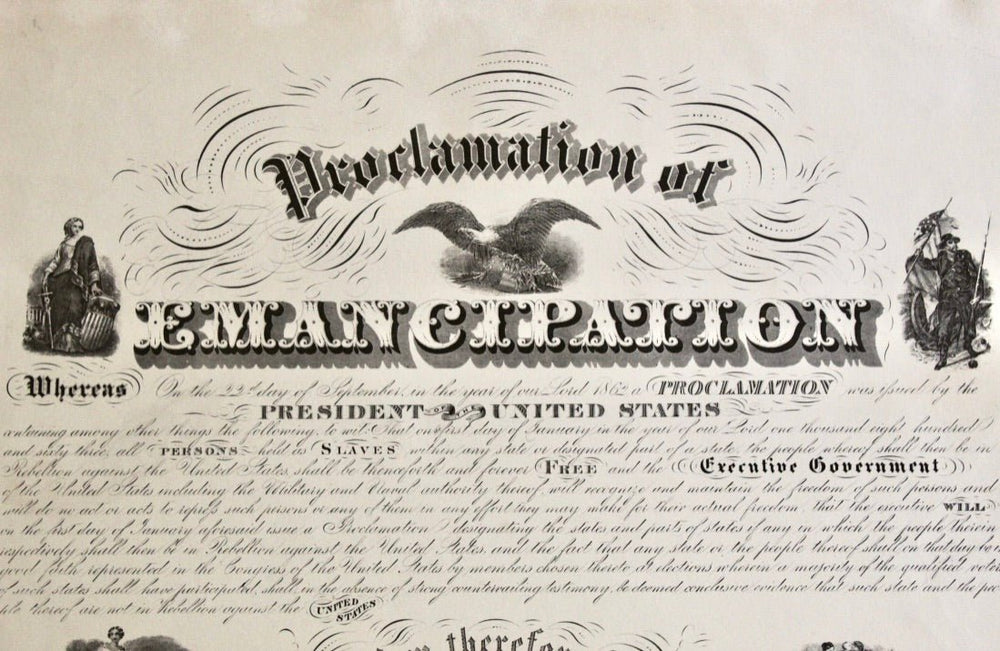 Proclamation of
EMANCIPATION
Whereas On the 22d day of September, in the year of our Lord 1862 a PROCLAMATION was issued by the
PRESIDENT OF THE UNITED STATES
containing among other things the following, to wit: That on first day of January in the year of our Lord one thousand eight hundred
and sixty three, all PERSONS held as SLAVES within any state or designated part of a state the people whereof shall then be in
Rebellion against the United States shall be thenceforth and forever FREE and the Executive Government
of the United States including the Military and Naval authority thereof, will recognize and maintain the freedom of such persons and
will do no act or acts to repress such persons or any of them in any effort they may make for their actual freedom that the executive WILL
on the first day of January aforesaid issue a Proclamation designating the states and parts of states if any in which the people therein
respectively shall then be in Rebellion against the United States and the fact that any state or the people thereof shall on that day be in
good faith represented in the Congress of the United States by members chosen thereto at elections wherein a majority of the qualified voters
of such states shall have participated, shall, in the absence of strong countervailing testimony, be deemed conclusive evidence that such state and the peo
ple thereof are not in Rebellion against the UNITED STATES
therefore